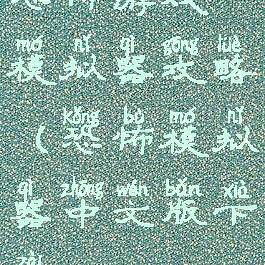 恐怖游戏
mó nǐ qì gōng luè
模拟器攻略
kǒng bù mó nǐ
(恐怖模拟
qì zhōng wén bǎn xià
器中文版下
zài